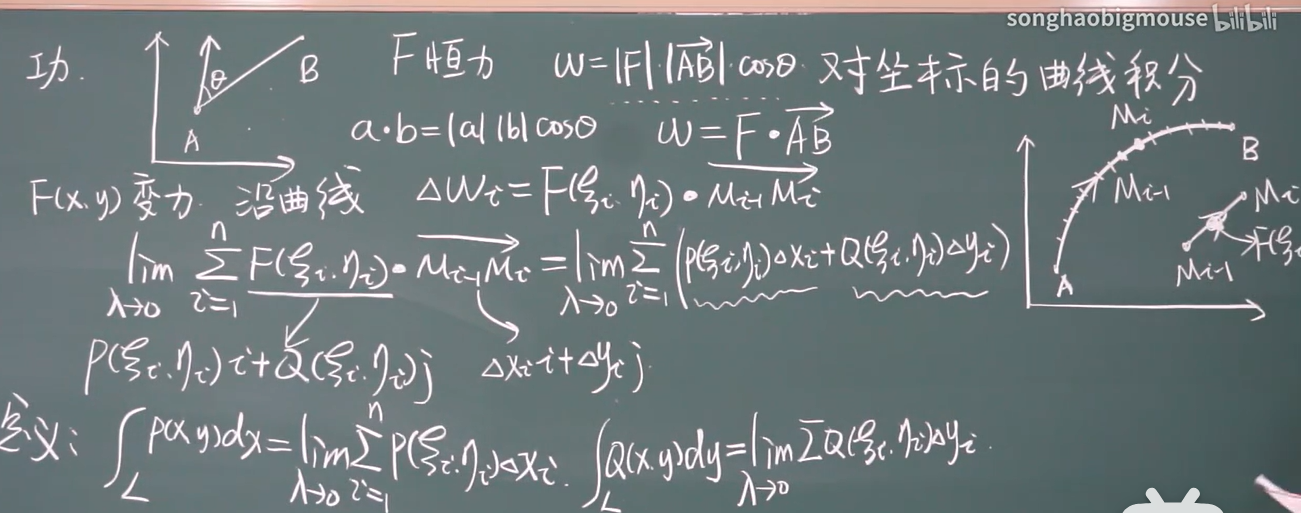 songhaobigmouse bilibili
功. θ A B F恒力 W=|F|·|AB→|·cosθ 对坐标的曲线积分
a·b=|a||b|cosθ W=F·AB→
F(x,y)变力. 沿曲线 ΔWi=F(ξi,ηi)·Mi-1Mi→
lim λ→0 Σ i=1 n F(ξi,ηi)·Mi-1Mi→ = lim λ→0 Σ i=1 n (P(ξi,ηi)Δxi+Q(ξi,ηi)Δyi)
P(ξi,ηi)i+Q(ξi,ηi)j Δxi i+Δyi j
Mi B
Mi-1 Mi
F(ξ
Mi-1
A
定义: ∫L P(x,y)dx=lim λ→0 Σ i=1 n P(ξi,ηi)Δxi. ∫L Q(x,y)dy=lim λ→0 ΣQ(ξi,ηi)Δyi.